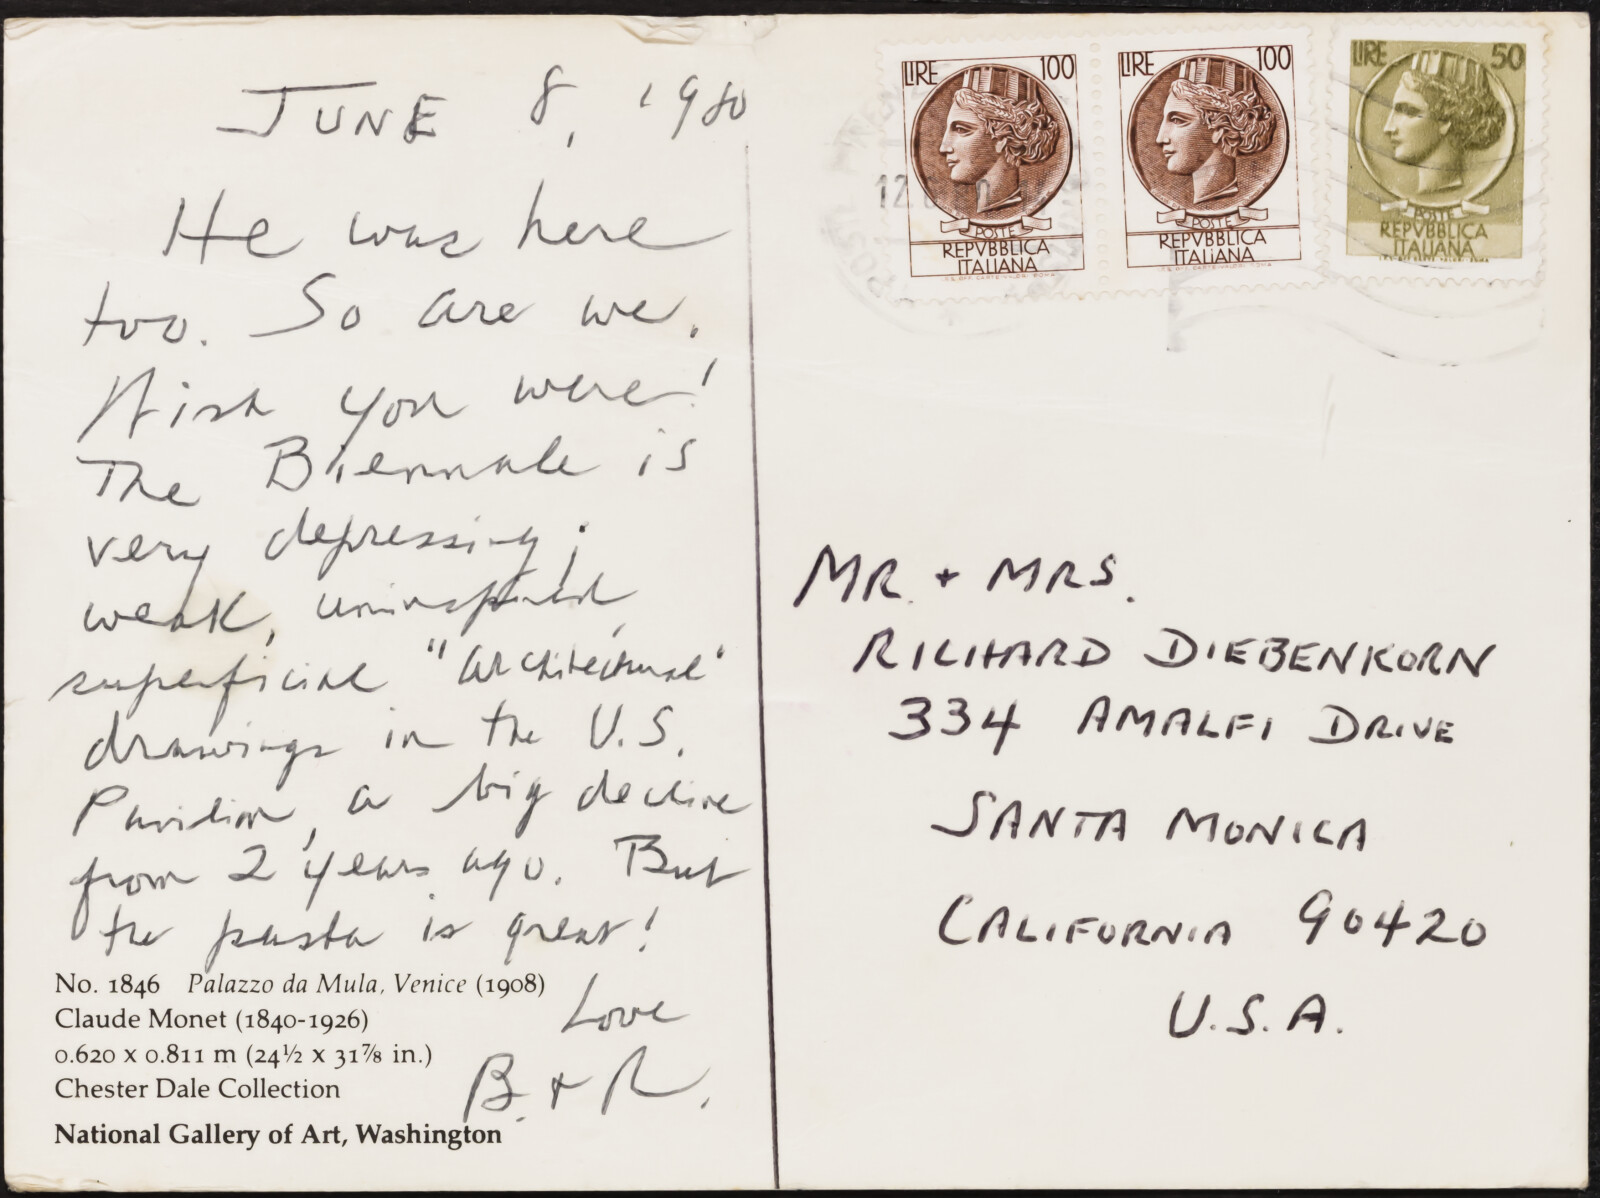 JUNE 8, 1980
He was here
too. So are we.
Wish you were!
The Biennale is
very depressing;
weak, uninspired,
superficial "architectural"
drawings in the U.S.
Pavilion, a big decline
from 2 years ago. But
the pasta is great!
Love
B. + R.
No. 1846 Palazzo da Mula, Venice (1908)
Claude Monet (1840-1926)
0.620 x 0.811 m (24½ x 31⅞ in.)
Chester Dale Collection
National Gallery of Art, Washington
LIRE 100
POSTE
REPVBBLICA
ITALIANA
LIRE 100
POSTE
REPVBBLICA
ITALIANA
LIRE 50
POSTE
REPVBBLICA
ITALIANA
12
MR. + MRS.
RICHARD DIEBENKORN
334 AMALFI DRIVE
SANTA MONICA
CALIFORNIA 90420
U.S.A.